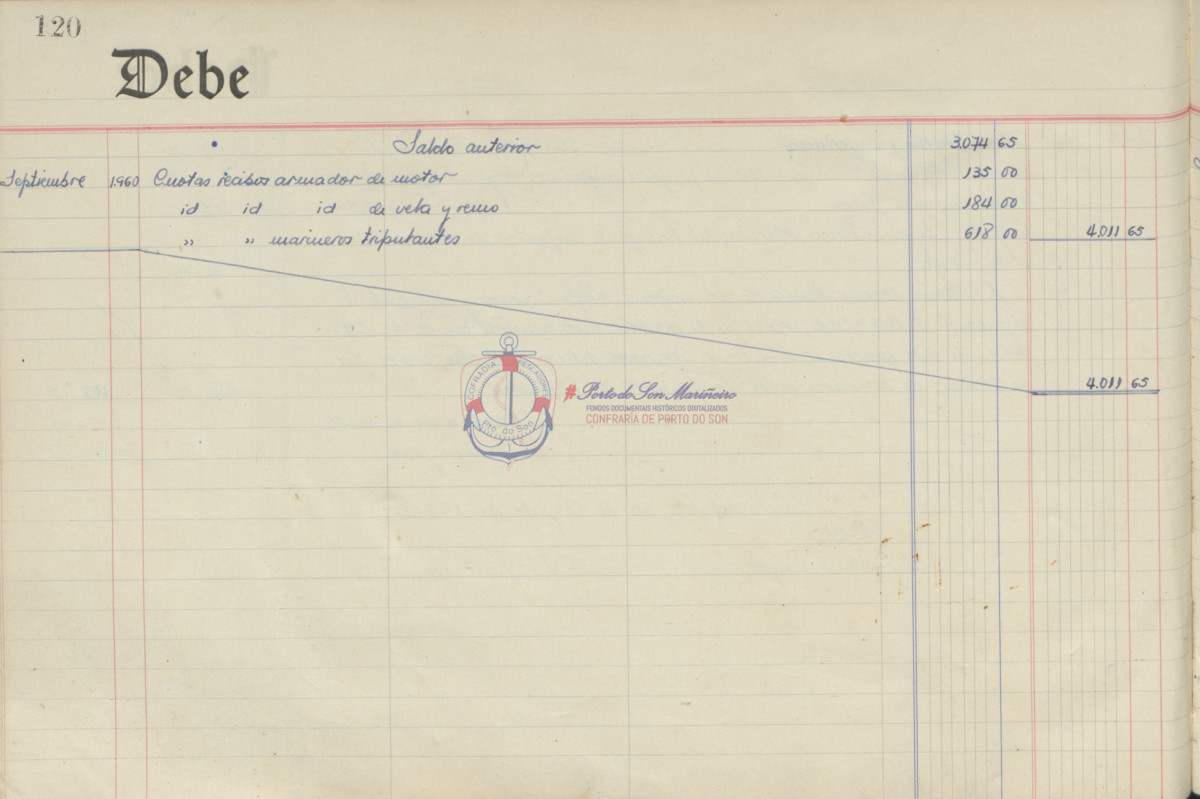 120
Debe
Saldo anterior 3.074 65
Septiembre 1.960 Cuotas recibos armador de motor 135 00
id id id de vela y remo 184 00
" " marineros tripulantes 618 00 4.011 65
4.011 65
COFRADIA PESCADORES
Pto. do Son
#Porto do Son Mariñeiro
FONDOS DOCUMENTAIS HISTÓRICOS DIXITALIZADOS
CONFRARÍA DE PORTO DO SON